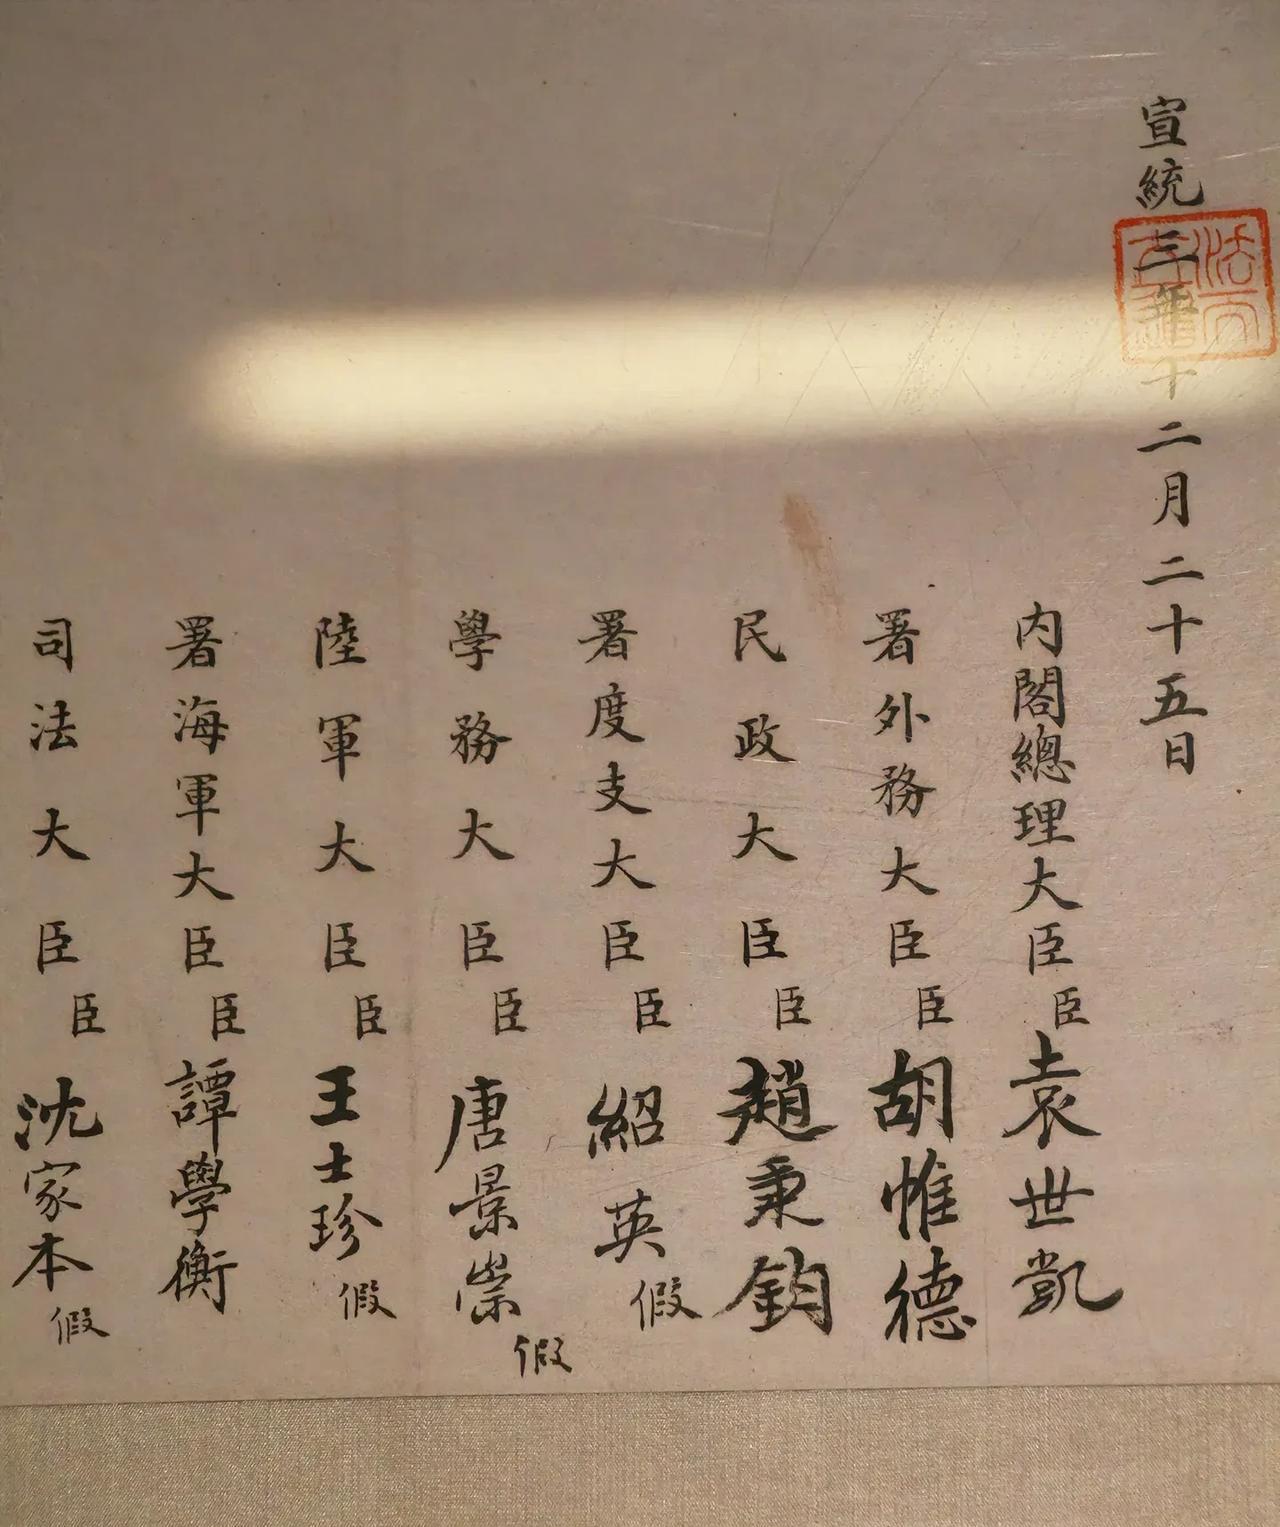 宣統三年十二月二十五日
內閣總理大臣臣袁世凱
署外務大臣臣胡惟德
民政大臣臣趙秉鈞
署度支大臣臣紹英假
學務大臣臣唐景崇假
陸軍大臣臣王士珍假
署海軍大臣臣譚學衡
司法大臣臣沈家本假